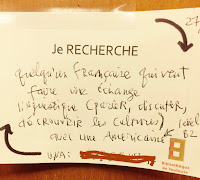 27
Je RECHERCHE
quelqu'un française qui veut
faire une échange
linguistique (parler, discuter,
découvrir les cultures)
avec une Américaine
B2
Bibliothèque